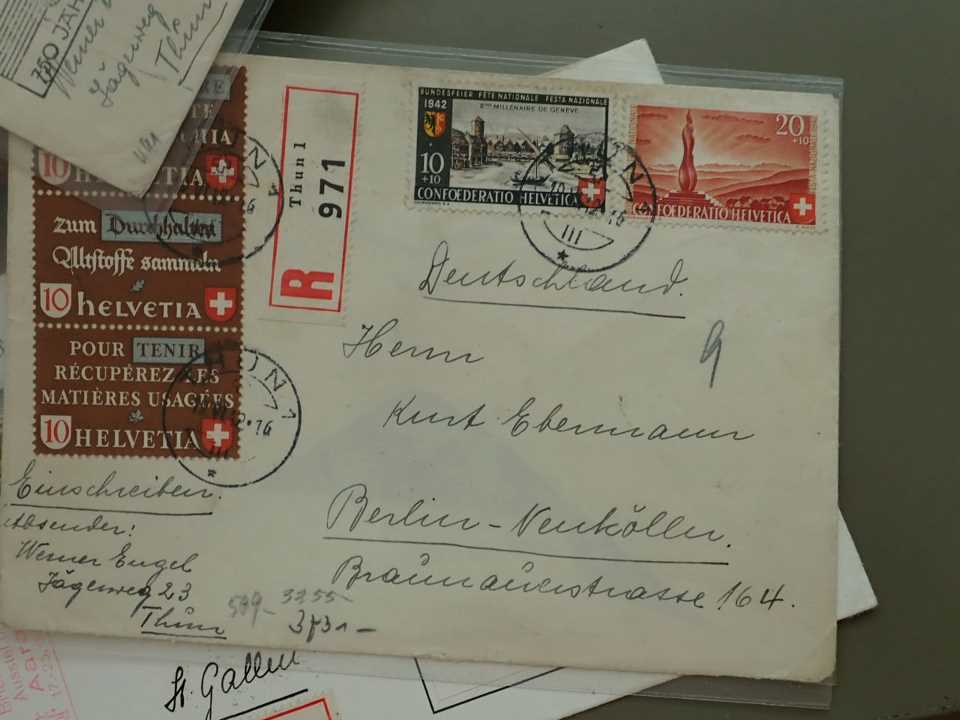 750 JAH
Werner
Jägerweg
Thun
HELVETIA
10
zum Durchhalten
Altstoffe sammeln
10 HELVETIA
POUR TENIR
RÉCUPÉREZ LES
MATIÈRES USAGÉES
10 HELVETIA
R
Thun 1
971
BUNDESFEIER FÊTE NATIONALE FESTA NAZIONALE
1942
2ME MILLENAIRE DE GENÈVE
10
+10
CONFOEDERATIO HELVETICA
20
+10
CONFOEDERATIO HELVETICA
THUN 1
III
THUN 1
III
Deutschland.
9
Herrn
Kurt Ebermann
Berlin-Neukölln.
Braunauerstrasse 164.
Einschreiben.
Absender:
Werner Engel
Jägerweg 23
Thun
599-
3255-
St. Gallen